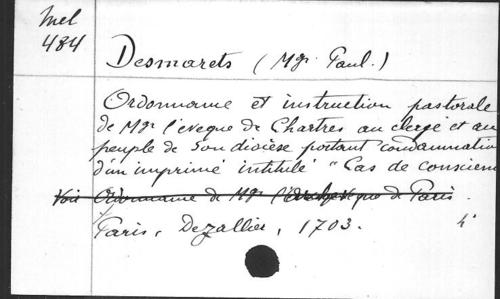 Mel
484
Desmarets (Mgr. Paul.)
Ordonnance et instruction pastorale
de Mgr l'eveque de Chartres au clergé et au
peuple de son diocèse portant condamnation
d'un imprimé intitulé "Cas de conscien
Voir Ordonnance de Mgr l'archevêque de Paris.
Paris, Dezallier, 1703. 4°